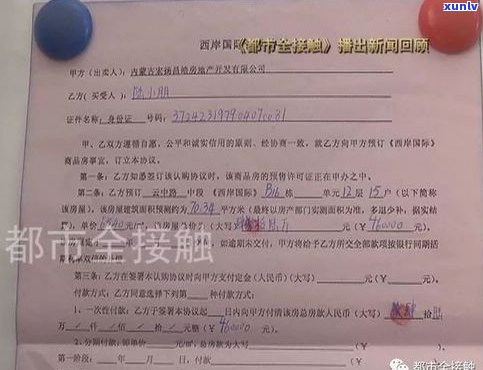 xunlv
.com
西岸国际《都市全接触》播出新闻回顾
甲方（出卖人）：内蒙古宏扬昌皓房地产开发有限公司
乙方（买受人）：陆小朋
证件名称：身份证 号码：
甲、乙双方遵循自愿、公平和诚实信用的原则，经协商一致，就乙方向甲方预订《西岸国际》
商品房事宜，订立本协议。
第一条：乙方如愿签订该认购协议时，该商品房的预售许可证正在申办之中。
第二条：乙方预订 云中路 中段《西岸国际》B16 栋 单元 12 层 15 户（以下简称
该房屋），该房屋建筑面积预测约为 70.34 平方米（最终以房产部门实测面积为准，多退少补，据实结
算），单价 元/ 房屋总价为（大写） 万（￥460000）元。
都市全接触
如逾期未交付，甲方将给予乙方所交全部款项按银行同期活
期利率双倍的
第三条：乙方在签署本认购协议时向甲方支付定金（人民币）（大写） 元（ 元）。
付款方式：乙方同意选择下列第 种付款方式：
1、一次性付款：乙方于签署本协议起 日内向甲方付清该房总房款人民币（大写） 肆 拾 陆
万 仟 佰 拾 元整（￥460000）元。
2、分期付款 总房款为大写 元（￥ ）元。
第一阶段： 年 月 日，付款
都市全接触